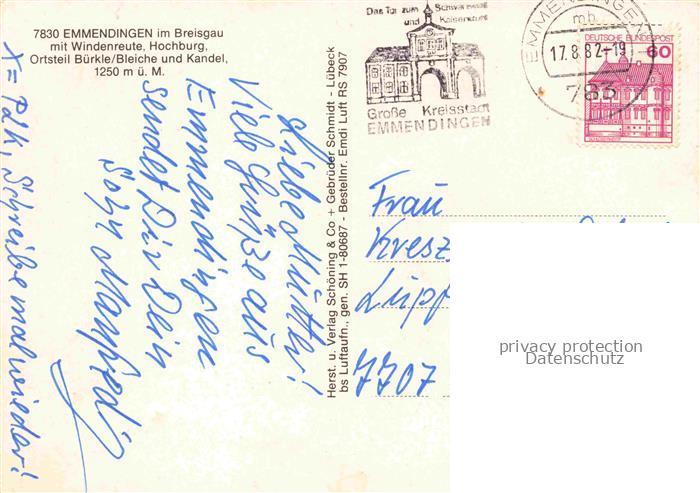 7830 EMMENDINGEN im Breisgau
mit Windenreute, Hochburg,
Ortsteil Bürkle/Bleiche und Kandel,
1250 m ü. M.
Das Tor zum Schwarzwald
und Kaiserstuhl
Große Kreisstadt
EMMENDINGEN
EMMENDINGEN
mb
17.8.82-19
783
DEUTSCHE BUNDESPOST
60
Herst. u. Verlag Schöning & Co + Gebrüder Schmidt - Lübeck
bs Luftaufn., gen. SH 1-80687 - Bestellnr. Emdi Luft RS 7907
Liebe Mutter!
Viele Grüße aus
Emmendingen
sendet Dir Dein
Sohn Manfred
Schreibe mal wieder!
Frau
Kresz
Lupf
7707
privacy protection
Datenschutz